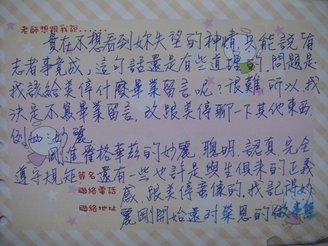 老師想跟我說....
實在不想看到妳失望的神情,只能說「有
志者事竟成」,這句話還是有些道理的,問題是
我該給美停什麼畢業留言呢?很難,所以我
決定不寫畢業留言,改跟美停聊一下其他東西,
例如:妙麗
剛進霍格華茲的妙麗,聰明、認真、完全
遵守規矩,還有一些也許是與生俱來的正義
簽名
感,跟美停蠻像的,我記得妙
聯絡電話
麗剛開始還對榮恩的
聯絡地址